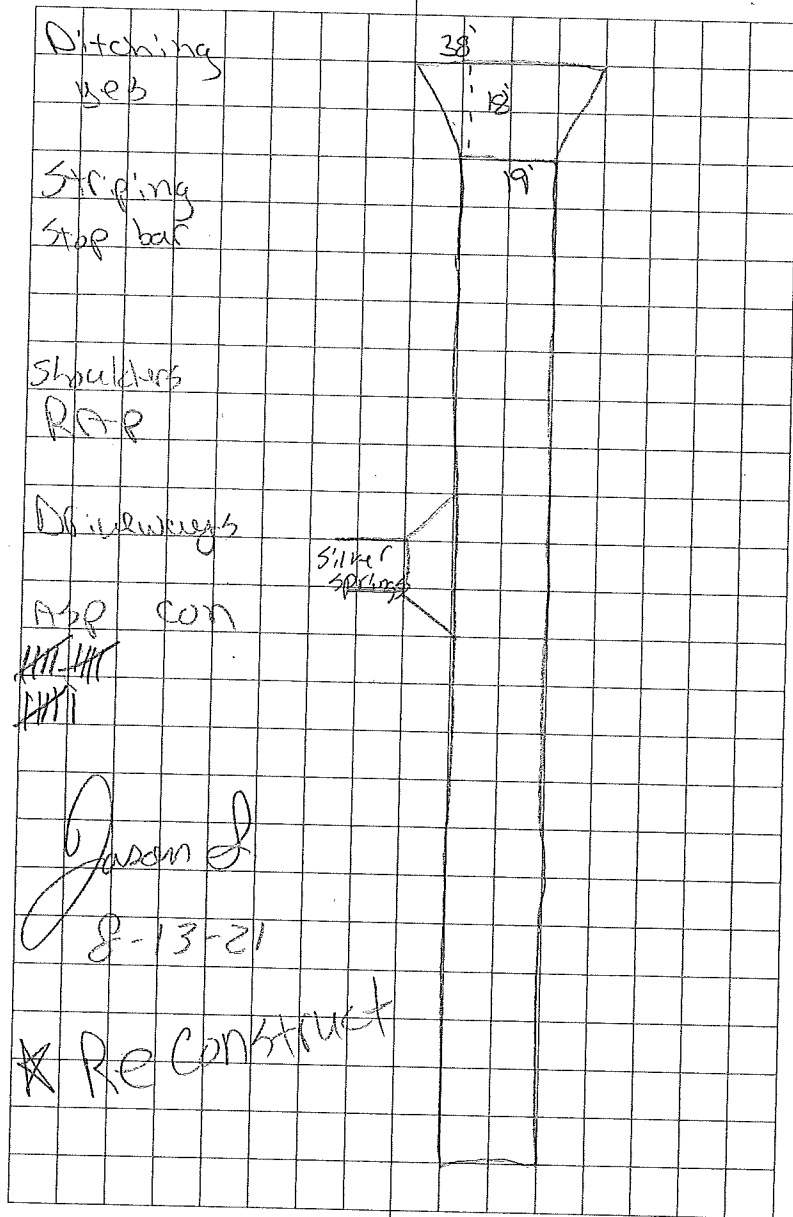 Ditching
yes
Striping
Stop bar
Shoulders
RAP
Driveways
Asp con
Jason S
8-13-21
☆ ReConstruct
38'
18'
19'
Silver
Springs